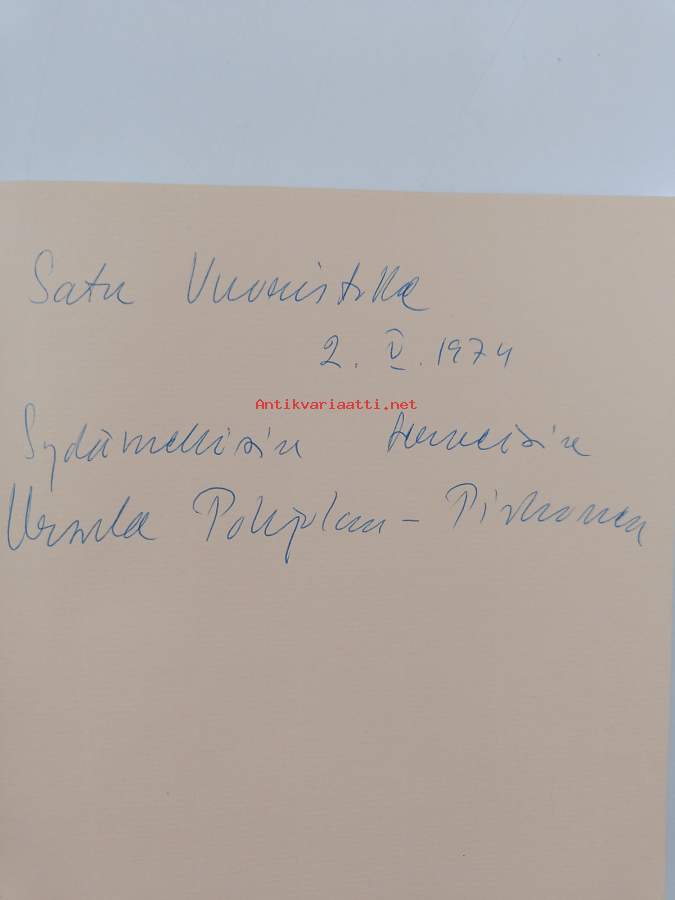 Satu Vuoristolle
2. V. 1974
Antikvariaatti.net
Sydämellisin terveisin
Ursula Pohjolan-Pirhonen